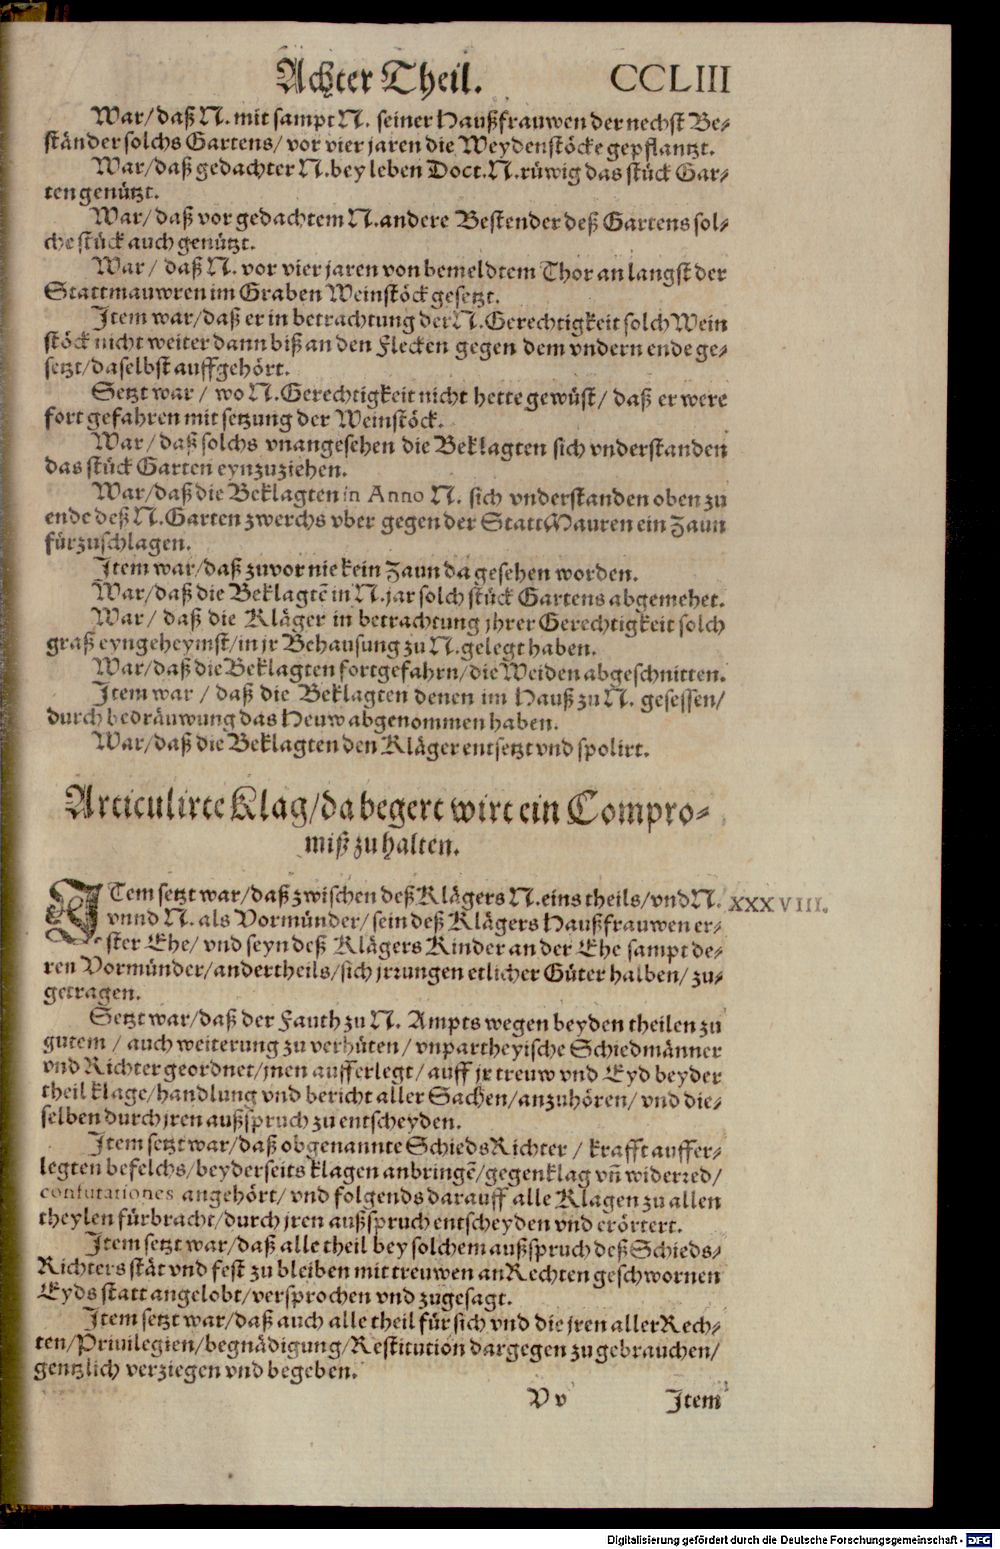 Achter Theil. CCLIII
War/ daß N. mit sampt N. seiner Haußfrauwen der nechst Be-
ständer solchs Gartens/ vor vier jaren die Weydenstöcke gepflantzt.
War/ daß gedachter N. bey leben Doct. N. rüwig das stück Gar-
ten genützt.
War/ daß vor gedachtem N. andere Bestender deß Gartens sol-
che stück auch genützt.
War/ daß N. vor vier jaren von bemeldtem Thor an langst der
Stattmauwren im Graben Weinstöck gesetzt.
Item war/ daß er in betrachtung der N. Gerechtigkeit solch Wein
stöck nicht weiter dann biß an den Flecken gegen dem vndern ende ge-
setzt/ daselbst auffgehört.
Setzt war/ wo N. Gerechtigkeit nicht hette gewüst/ daß er were
fort gefahren mit setzung der Weinstöck.
War/ daß solchs vnangesehen die Beklagten sich vnderstanden
das stück Garten eynzuziehen.
War/ daß die Beklagten in Anno N. sich vnderstanden oben zu
ende deß N. Garten zwerchs vber gegen der Statt Mauren ein Zaun
fürzuschlagen.
Item war/ daß zuvor nie kein Zaun da gesehen worden.
War/ daß die Beklagtē in N. jar solch stück Gartens abgemehet.
War/ daß die Kläger in betrachtung jhrer Gerechtigkeit solch
graß eyngeheymst/ in jr Behausung zu N. gelegt haben.
War/ daß die Beklagten fortgefahrn/ die Weiden abgeschnitten.
Item war/ daß die Beklagten denen im Hauß zu N. gesessen/
durch bedräuwung das Heuw abgenommen haben.
War/ daß die Beklagten den Kläger entsetzt vnd spolirt.
Articulirte Klag/ da begert wirt ein Compro-
miß zu halten.
ITem setzt war/ daß zwischen deß Klägers N. eins theils/ vnd N. XXXVIII.
vnnd N. als Vormünder/ sein deß Klägers Haußfrauwen er-
ster Ehe/ vnd seyn deß Klägers Kinder an der Ehe sampt de-
ren Vormünder/ andertheils/ sich jrrungen etlicher Güter halben/ zu-
getragen.
Setzt war/ daß der Fauth zu N. Ampts wegen beyden theilen zu
gutem/ auch weiterung zu verhüten/ vnpartheyische Schiedmänner
vnd Richter geordnet/ jnen aufferlegt/ auff jr treuw vnd Eyd beyder
theil klage/ handlung vnd bericht aller Sachen/ anzuhören/ vnd die-
selben durch jren außspruch zu entscheyden.
Item setzt war/ daß obgenannte SchiedsRichter/ krafft auffer-
legten befelchs/ beyderseits klagen anbringē/ gegenklag vñ widerred/
confutationes angehört/ vnd folgends darauff alle Klagen zu allen
theylen fürbracht/ durch jren außspruch entscheyden vnd erörtert.
Item setzt war/ daß alle theil bey solchem außspruch deß Schieds-
Richters stät vnd fest zu bleiben mit treuwen an Rechten geschwornen
Eyds statt angelobt/ versprochen vnd zugesagt.
Item setzt war/ daß auch alle theil für sich vnd die jren aller Rech-
ten/ Priuilegien/ begnädigung/ Restitution dargegen zu gebrauchen/
gentzlich verziegen vnd begeben.
Vv Item
Digitalisierung gefördert durch die Deutsche Forschungsgemeinschaft - DFG